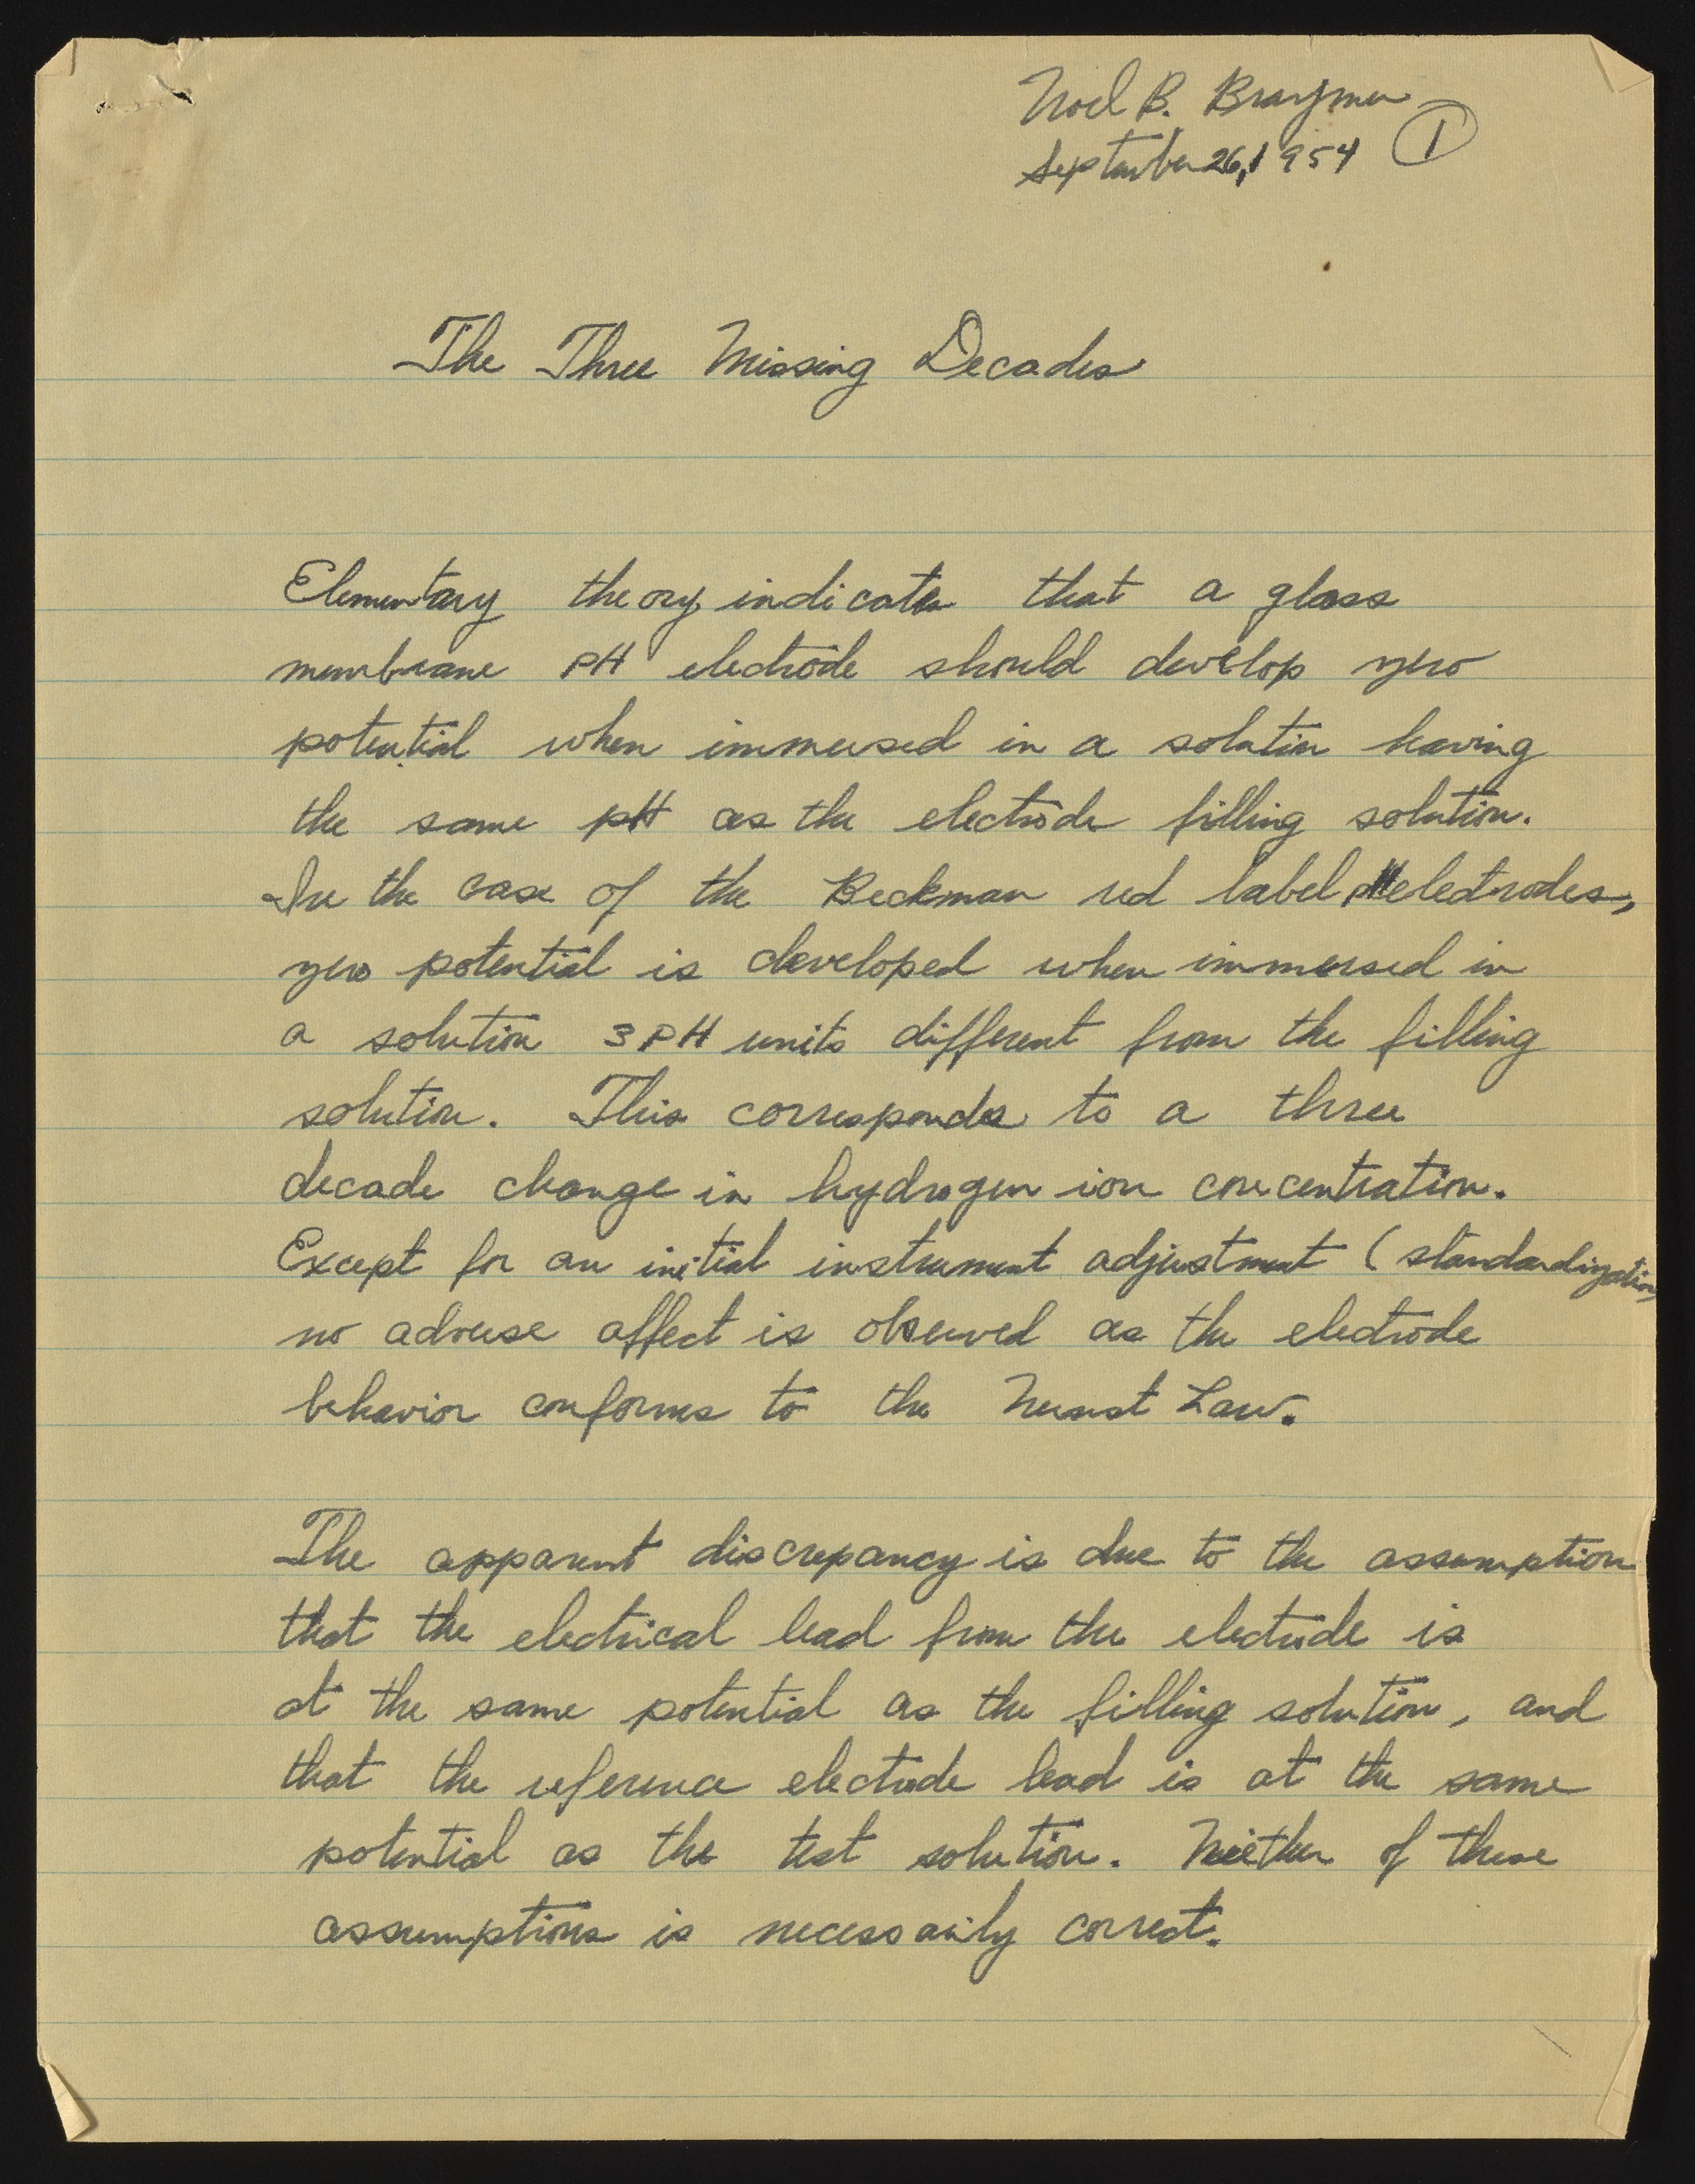 Noel B. Braymer
September 26, 1954 1
The Three Missing Decades
Elementary theory indicates that a glass
membrane pH electrode should develop zero
potential when immersed in a solution having
the same pH as the electrode filling solution.
In the case of the Beckman red label pH electrodes,
zero potential is developed when immersed in
a solution 3 PH units different from the filling
solution. This corresponds to a three
decade change in hydrogen ion concentration.
Except for an initial instrument adjustment (standardization)
no adverse affect is observed as the electrode
behavior conforms to the Nernst Law.
The apparent discrepancy is due to the assumption
that the electrical lead from the electrode is
at the same potential as the filling solution, and
that the reference electrode lead is at the same
potential as the test solution. Neither of these
assumptions is necessarily correct.